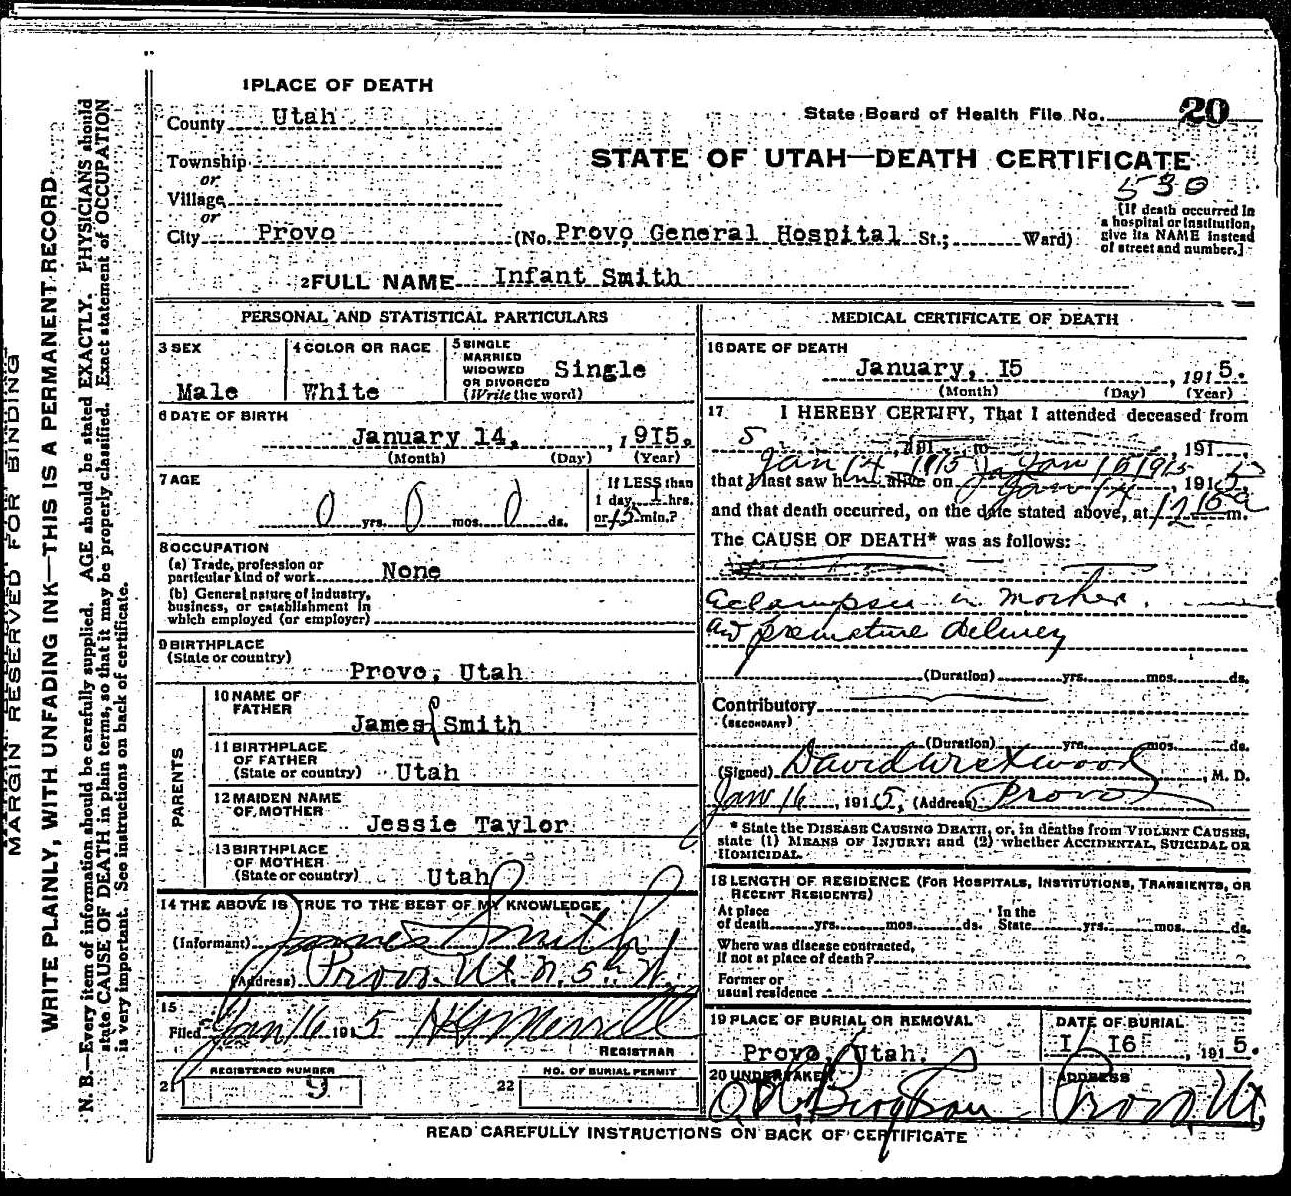 1 PLACE OF DEATH
County Utah
State Board of Health File No. 20
Township
or
STATE OF UTAH—DEATH CERTIFICATE
530
Village
or
City Provo (No. Provo General Hospital St.; Ward)
[If death occurred in
a hospital or institution,
give its NAME instead
of street and number.]
2 FULL NAME Infant Smith
PERSONAL AND STATISTICAL PARTICULARS
3 SEX
Male
4 COLOR OR RACE
White
5 SINGLE
MARRIED
WIDOWED
OR DIVORCED
(Write the word)
Single
6 DATE OF BIRTH
January 14, , 1915.
(Month) (Day) (Year)
7 AGE
0 yrs. 0 mos. 0 ds.
If LESS than
1 day, 1 hrs.
or 15 min.?
8 OCCUPATION
(a) Trade, profession or
particular kind of work None
(b) General nature of industry,
business, or establishment in
which employed (or employer)
9 BIRTHPLACE
(State or country)
Provo, Utah
PARENTS
10 NAME OF
FATHER
James Smith
11 BIRTHPLACE
OF FATHER
(State or country) Utah
12 MAIDEN NAME
OF MOTHER
Jessie Taylor
13 BIRTHPLACE
OF MOTHER
(State or country) Utah
14 THE ABOVE IS TRUE TO THE BEST OF MY KNOWLEDGE
(Informant) James Smith
(Address) Provo Ut. N. 5th W.
15
Filed Jan 16 1915 Merrill
REGISTRAR
21 REGISTERED NUMBER
9
22 NO. OF BURIAL PERMIT
MEDICAL CERTIFICATE OF DEATH
16 DATE OF DEATH
January, 15 , 1915.
(Month) (Day) (Year)
17 I HEREBY CERTIFY, That I attended deceased from
5 , 191 , to , 191
Jan 14 1915 to Jan 15 1915
that I last saw h alive on Jan 14 , 1915
and that death occurred, on the date stated above, at 12 15 a m.
The CAUSE OF DEATH* was as follows:
Eclampsia in mother.
and premature delivery
(Duration) yrs. mos. ds.
Contributory
(SECONDARY)
(Duration) yrs. mos. ds.
(Signed) David Westwood , M. D.
Jan 16 , 1915, (Address) Provo
* State the DISEASE CAUSING DEATH, or, in deaths from VIOLENT CAUSES,
state (1) MEANS OF INJURY; and (2) whether ACCIDENTAL, SUICIDAL OR
HOMICIDAL.
18 LENGTH OF RESIDENCE (FOR HOSPITALS, INSTITUTIONS, TRANSIENTS, OR
RECENT RESIDENTS)
At place
of death yrs. mos. ds. In the
State yrs. mos. ds.
Where was disease contracted,
if not at place of death?
Former or
usual residence
19 PLACE OF BURIAL OR REMOVAL
Provo, Utah.
DATE OF BURIAL
1/ 16 , 1915.
20 UNDERTAKER
ADDRESS
Provo, Ut,
READ CAREFULLY INSTRUCTIONS ON BACK OF CERTIFICATE
MARGIN RESERVED FOR BINDING
WRITE PLAINLY, WITH UNFADING INK—THIS IS A PERMANENT RECORD
N. B.—Every item of information should be carefully supplied. AGE should be stated EXACTLY. PHYSICIANS should
state CAUSE OF DEATH in plain terms, so that it may be properly classified. Exact statement of OCCUPATION
is very important. See instructions on back of certificate.